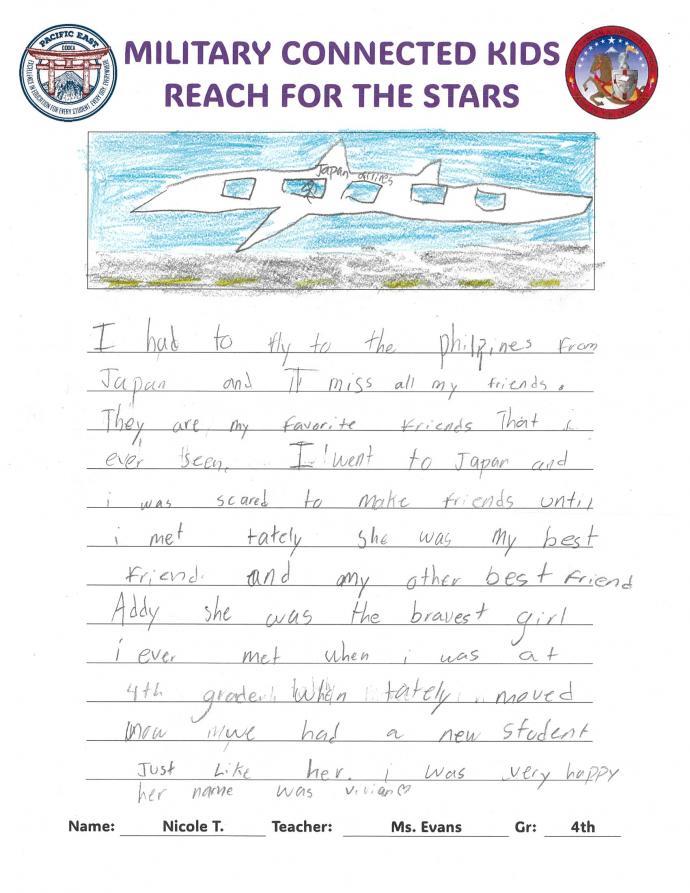 PACIFIC EAST
DODEA
EXCELLENCE IN EDUCATION FOR EVERY STUDENT, EVERY DAY, EVERYWHERE
MILITARY CONNECTED KIDS
REACH FOR THE STARS
Japan airlines
I had to fly to the philipines from
Japan and I miss all my friends.
They are my favorite friends That i
ever seen. I went to Japan and
i was scared to make friends until
i met tately she was my best
friend. and my other best friend
Addy she was the bravest girl
i ever met when i was at
4th grade. When tately moved
now we had a new student
Just Like her. i was very happy
her name was vivian♡
Name: Nicole T. Teacher: Ms. Evans Gr: 4th